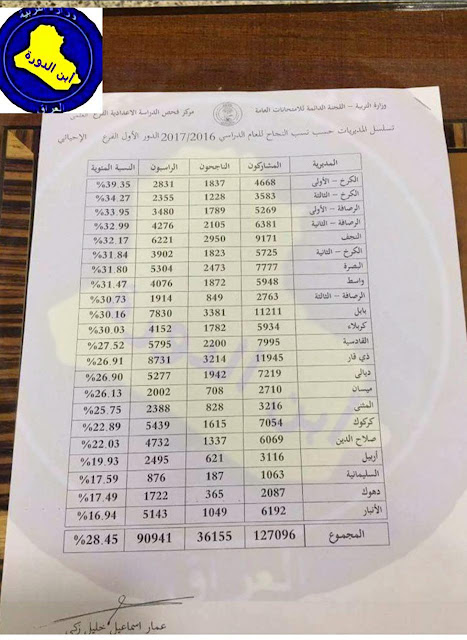 وزارة التربية
أبن الدورة
العراق
وزارة التربية - اللجنة الدائمة للامتحانات العامة
مركز فحص الدراسة الاعدادية الفرع العلمي
تسلسل المديريات حسب نسب النجاح للعام الدراسي 2017/2016 الدور الأول الفرع الإحيائي
المديرية المشاركون الناجحون الراسبون النسبة المئوية
الكرخ – الأولى 4668 1837 2831 %39.35
الكرخ – الثالثة 3583 1228 2355 %34.27
الرصافة – الأولى 5269 1789 3480 %33.95
الرصافة – الثانية 6381 2105 4276 %32.99
النجف 9171 2950 6221 %32.17
الكرخ – الثانية 5725 1823 3902 %31.84
البصرة 7777 2473 5304 %31.80
واسط 5948 1872 4076 %31.47
الرصافة – الثالثة 2763 849 1914 %30.73
بابل 11211 3381 7830 %30.16
كربلاء 5934 1782 4152 %30.03
القادسية 7995 2200 5795 %27.52
ذي قار 11945 3214 8731 %26.91
ديالى 7219 1942 5277 %26.90
ميسان 2710 708 2002 %26.13
المثنى 3216 828 2388 %25.75
كركوك 7054 1615 5439 %22.89
صلاح الدين 6069 1337 4732 %22.03
أربيل 3116 621 2495 %19.93
السليمانية 1063 187 876 %17.59
دهوك 2087 365 1722 %17.49
الأنبار 6192 1049 5143 %16.94
المجموع 127096 36155 90941 %28.45
أبن الدورة
العراق
عمار اسماعيل خليل زكي